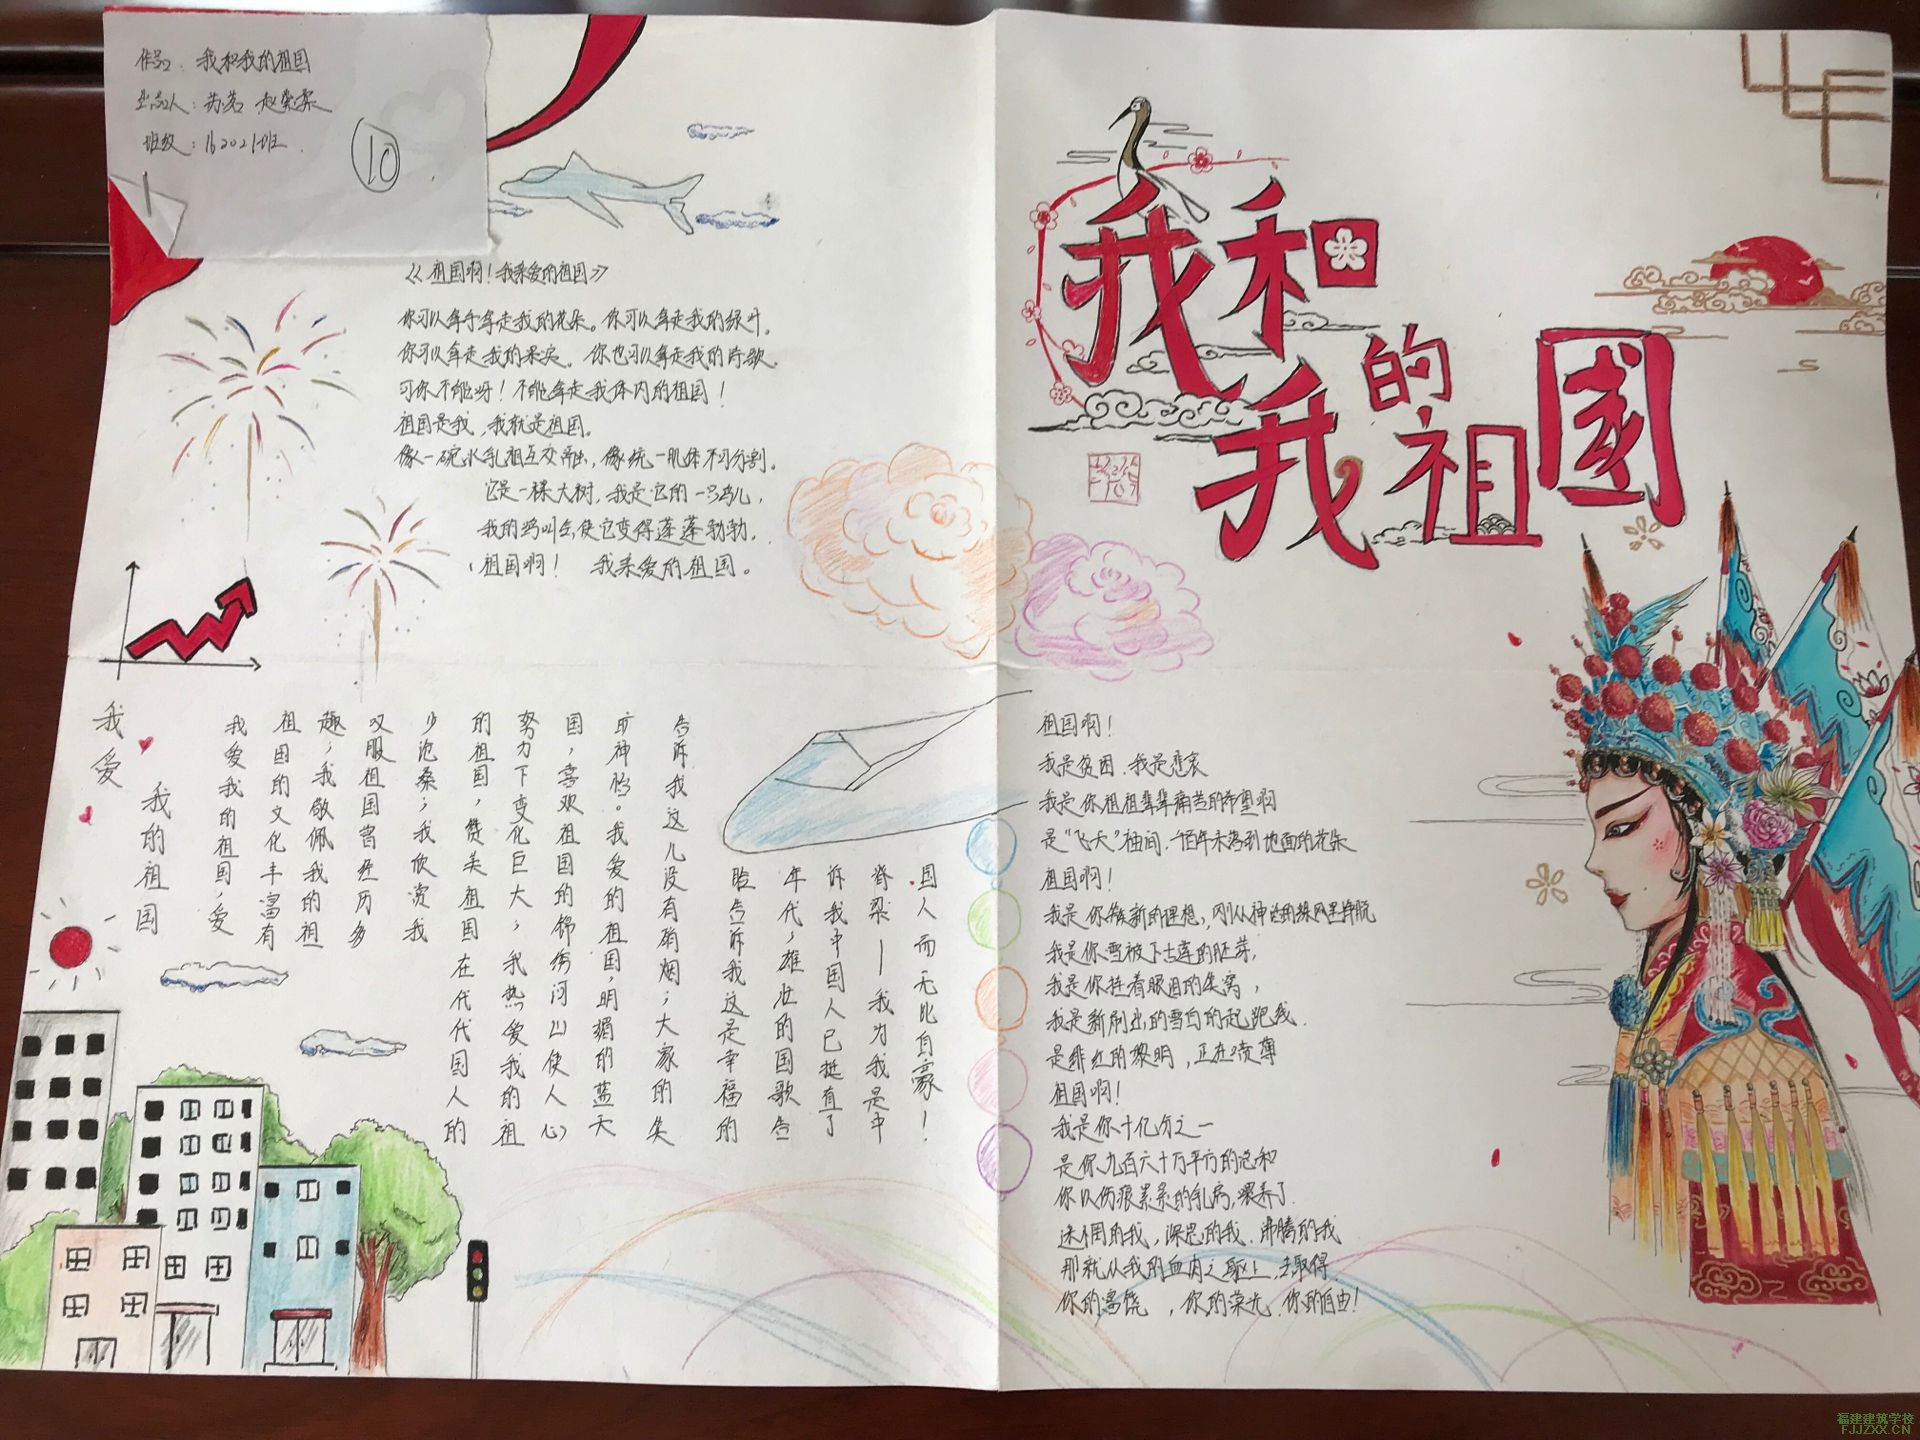 作品:我和我的祖国
出品人:苏茗 赵紫霖
班级:162021班
10
我和
我的祖國
《祖国啊!我亲爱的祖国》
你可以拿手拿走我的花朵。你可以拿走我的绿叶。
你可以拿走我的果实。你也可以拿走我的诗歌。
可你不能呀!不能拿走我体内的祖国!
祖国是我,我就是祖国。
像一碗水乳相互交融,像统一肌体不可分割。
它是一棵大树,我是它的一只鸟儿,
我的鸣叫会使它变得蓬蓬勃勃.
祖国啊! 我亲爱的祖国。
我爱
我的祖国
我爱我的祖国,爱
祖国的文化丰富有
趣;我敬佩我的祖
叹服祖国曾经历多
少沧桑;我欣赏我
的祖国,赞美祖国在代代国人的
努力下变化巨大;我热爱我的祖
国,喜欢祖国的锦绣河山使人心
旷神怡。我爱的祖国,明媚的蓝天
告诉我这儿没有硝烟;大家的笑
脸告诉我这是幸福的
年代,雄壮的国歌告
诉我中国人已挺直了
脊梁——我为我是中
国人而无比自豪!
祖国啊!
我是贫困.我是悲哀
我是你祖祖辈辈痛苦的希望啊
是“飞天”袖间.千百年未落到地面的花朵
祖国啊!
我是你簇新的理想,刚从神话的蛛网里挣脱
我是你雪被下古莲的胚芽,
我是你挂着眼泪的笑窝,
我是新刷出的雪白的起跑线.
是绯红的黎明,正在喷薄
祖国啊!
我是你十亿分之一
是你九百六十万平方的总和
你以伤痕累累的乳房,喂养了.
迷惘的我,深思的我.沸腾的我
那就从我的血肉之躯上,去取得
你的富饶,你的荣光.你的自由!
福建建筑学校
FJJZXX.CN